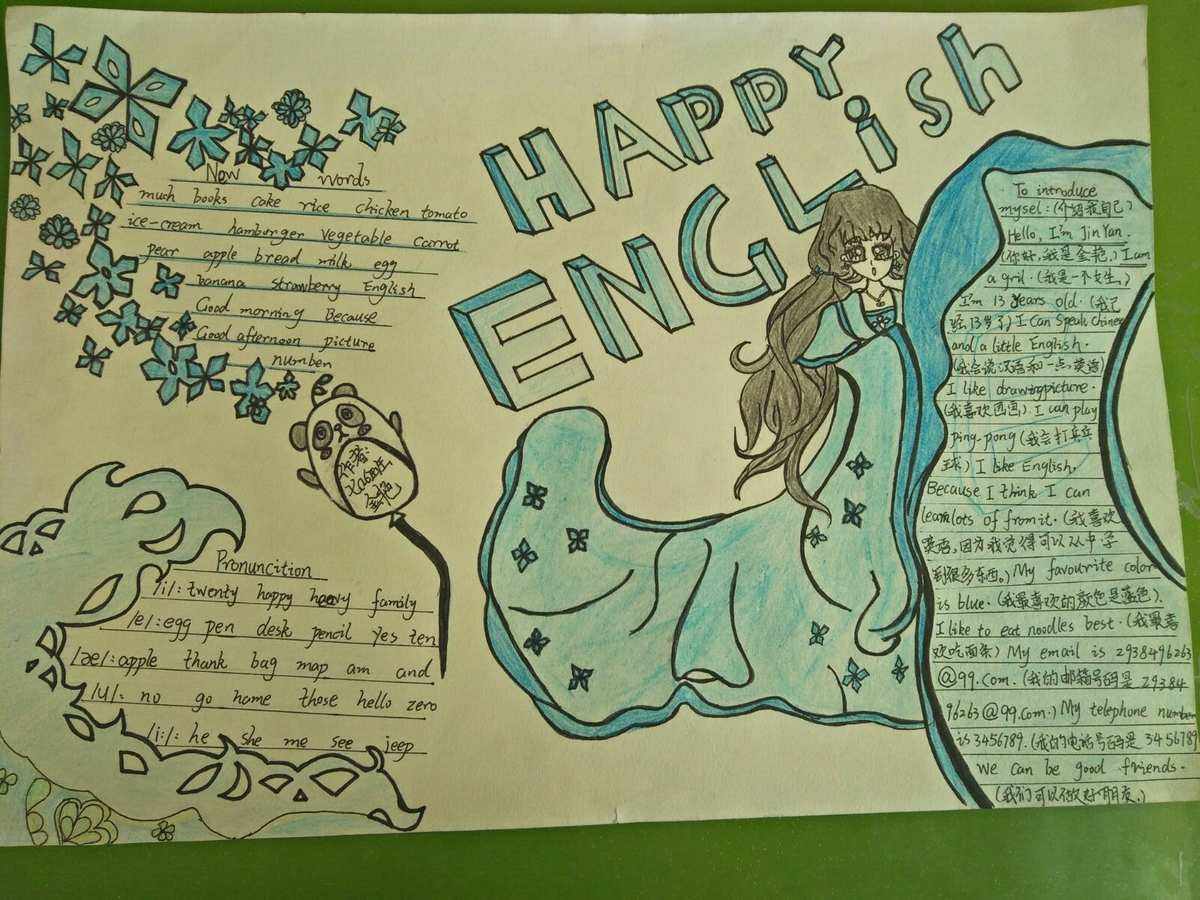 HAPPY
ENGLish
New words
much books cake rice chicken tomato
ice-cream hamburger vegetable carrot
pear apple bread milk egg
banana strawberry English
Good morning Because
Good afternoon picture
number
作者:
七a6班
金艳
Pronuncition
/i/: twenty happy heavy family
/e/: egg pen desk pencil yes ten
/æ/: apple thank bag map am and
/U/: no go home those hello zero
/i:/: he she me see jeep
To introduce
mysel: (介绍我自己)
Hello, I'm Jin Yan.
(你好,我是金艳.) I am
a gril. (我是一个女生.)
I'm 13 years old. (我已
经13岁了) I can speak chinese
and a little English.
(我会说汉语和一点英语)
I like drawing picture.
(我喜欢画画) I can play
ping-pong (我会打乒乓
球) I like English.
Because I think I can
learn lots of from it. (我喜欢
英语,因为我觉得可以从中学
到很多东西。) My favourite color
is blue. (我最喜欢的颜色是蓝色).
I like to eat noodles best. (我最喜
欢吃面条) My email is 2938496263
@99.com. (我的邮箱号码是 29384
96263@99.com.) My telephone number
is 3456789. (我的电话号码是 3456789
We can be good friends.
(我们可以做好朋友.)